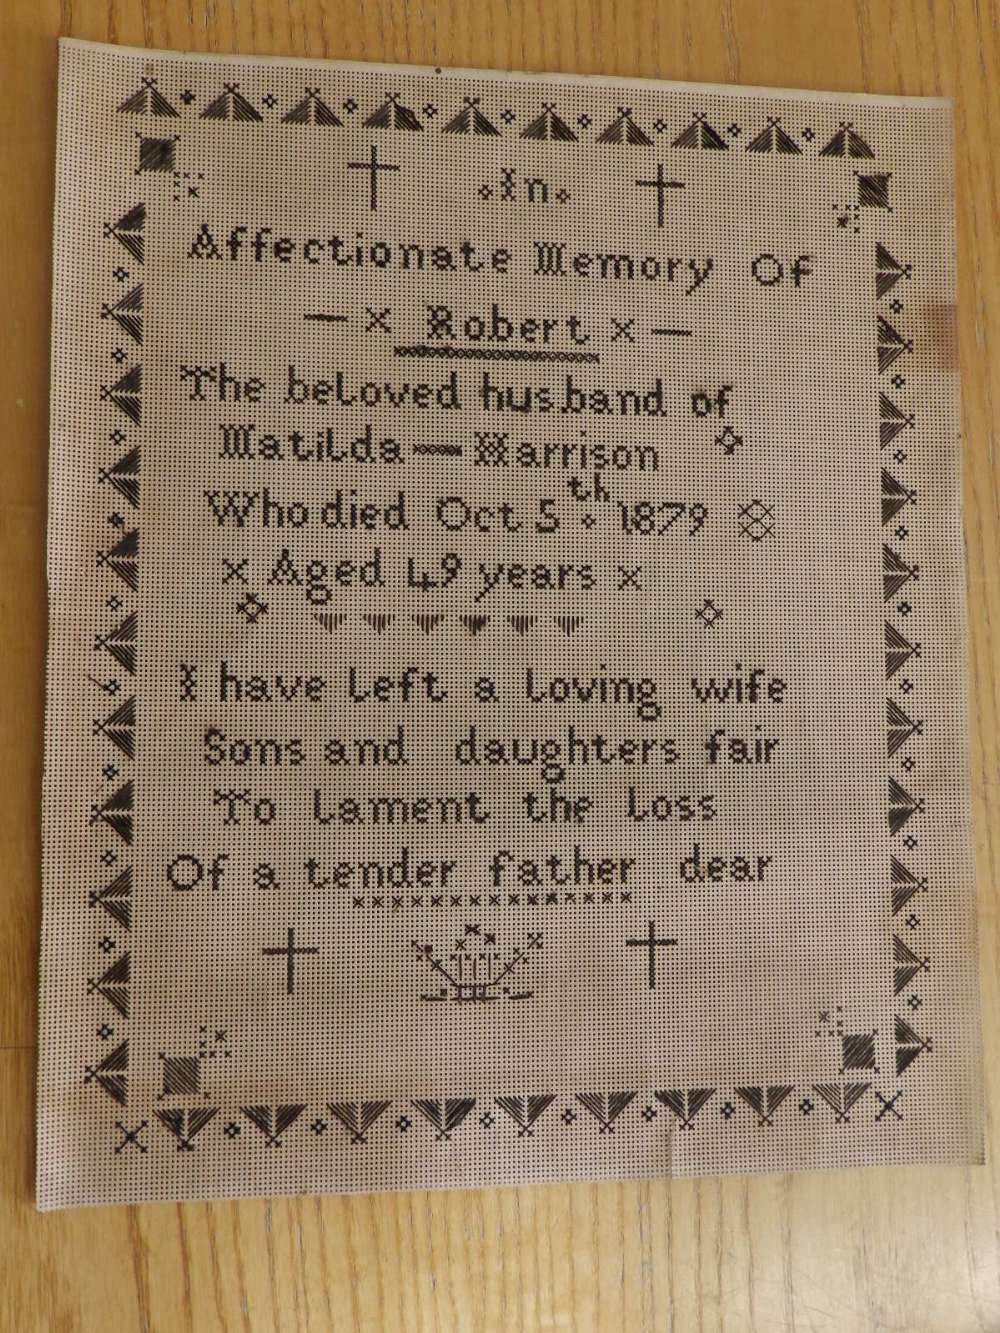 In
Affectionate Memory Of
— x Robert x —
The beloved husband of
Matilda — Harrison
Who died Oct 5th 1879
x Aged 49 years x
I have left a loving wife
Sons and daughters fair
To lament the loss
Of a tender father dear